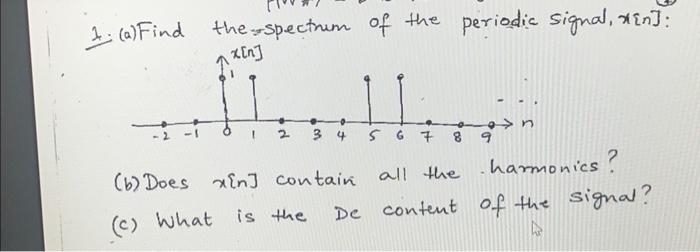 1. (a) Find the spectrum of the periodic signal, x[n]:
x[n]
1
-2 -1 0 1 2 3 4 5 6 7 8 9 n
(b) Does x[n] contain all the harmonics?
(c) What is the DC content of the signal?